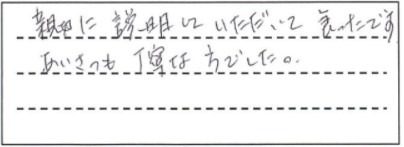 親切に説明していただいて良かったです
あいさつも丁寧な方でした。